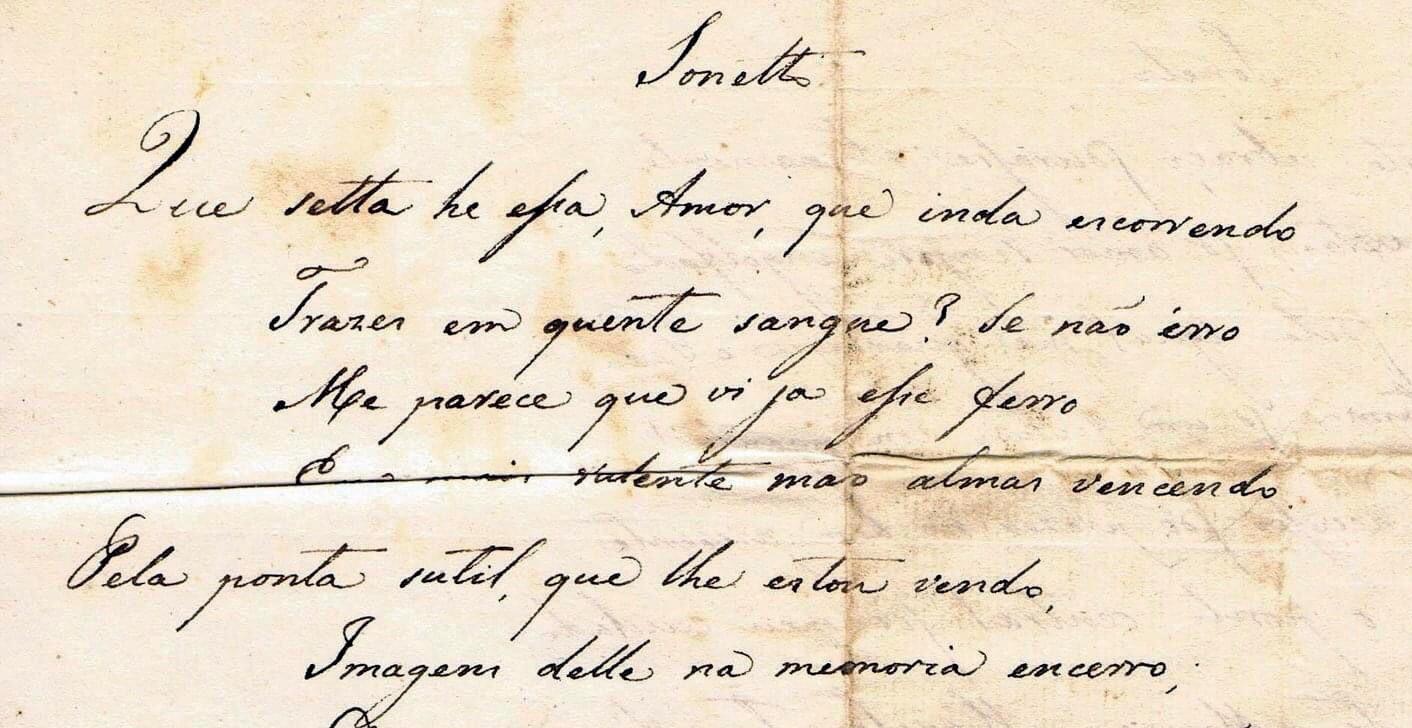 Sonetto
Que setta he essa, Amor, que inda escorrendo
Trazes em quente sangue? Se não érro
Me parece que vi ja esse ferro
mais valente mão almas vencendo
Pela ponta sutil, que lhe estou vendo,
Imagens delle na memoria encerro,